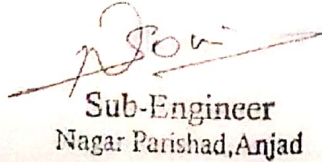 Sub-Engineer
Nagar Parishad,Anjad